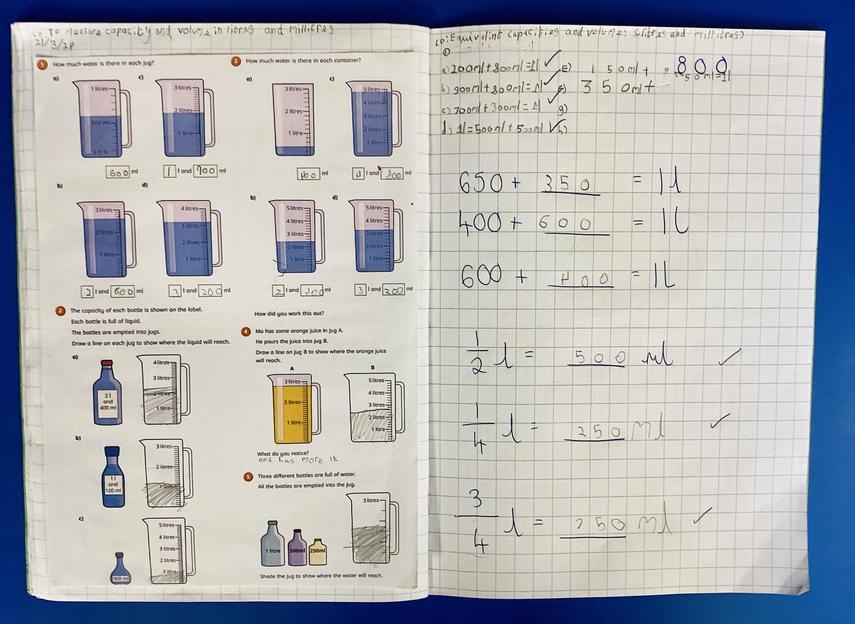 Lo To Measure capacity and volume in litres and millitres
21/3/24
1 How much water is there in each jug?
a)
1 litres
500 ml
600 ml
c)
3 litres
2 litres
1 litre
1 l and 700 ml
b)
3 litres
2 litres
1 litre
2 l and 600 ml
d)
4 litres
3 litres
2 litres
1 litre
3 l and 200 ml
2 The capacity of each bottle is shown on the label.
Each bottle is full of liquid.
The bottles are emptied into jugs.
Draw a line on each jug to show where the liquid will reach.
a)
2 l
and
400 ml
4 litres
3 litres
2 litres
1 litre
b)
1 l
and
100 ml
3 litres
2 litres
1 litre
c)
5 litres
4 litres
3 litres
2 litres
1 litre
3 How much water is there in each container?
a)
3 litres
2 litres
1 litre
400 ml
c)
5 litres
4 litres
3 litres
2 litres
1 litre
4 l and 200 ml
b)
5 litres
4 litres
3 litres
2 litres
1 litre
2 l and 400 ml
d)
5 litres
4 litres
3 litres
2 litres
1 litre
3 l and 200 ml
How did you work this out?
4 Mo has some orange juice in jug A.
He pours the juice into jug B.
Draw a line on jug B to show where the orange juice
will reach.
A
3 litres
2 litres
1 litre
B
5 litres
4 litres
3 litres
2 litres
1 litre
What do you notice?
one has more it
5 Three different bottles are full of water.
All the bottles are emptied into the jug.
1 litre
500ml
250ml
3 litres
Shade the jug to show where the water will reach.
Lo: Equivilint capacities and volumes (litres and millitres)
①
a) 200ml+800ml=1l E) 150ml+ 800
50ml=1l
b) 900ml+ =1l 350ml+
c) 700ml+300ml=1l g)
d) 1l=500ml+500ml h)
650 + 350 = 1l
400 + 600 = 1L
600 + 400 = 1L
1/2 l = 500 ml
1/4 l = 250 ml
3/4 l = 750 ml